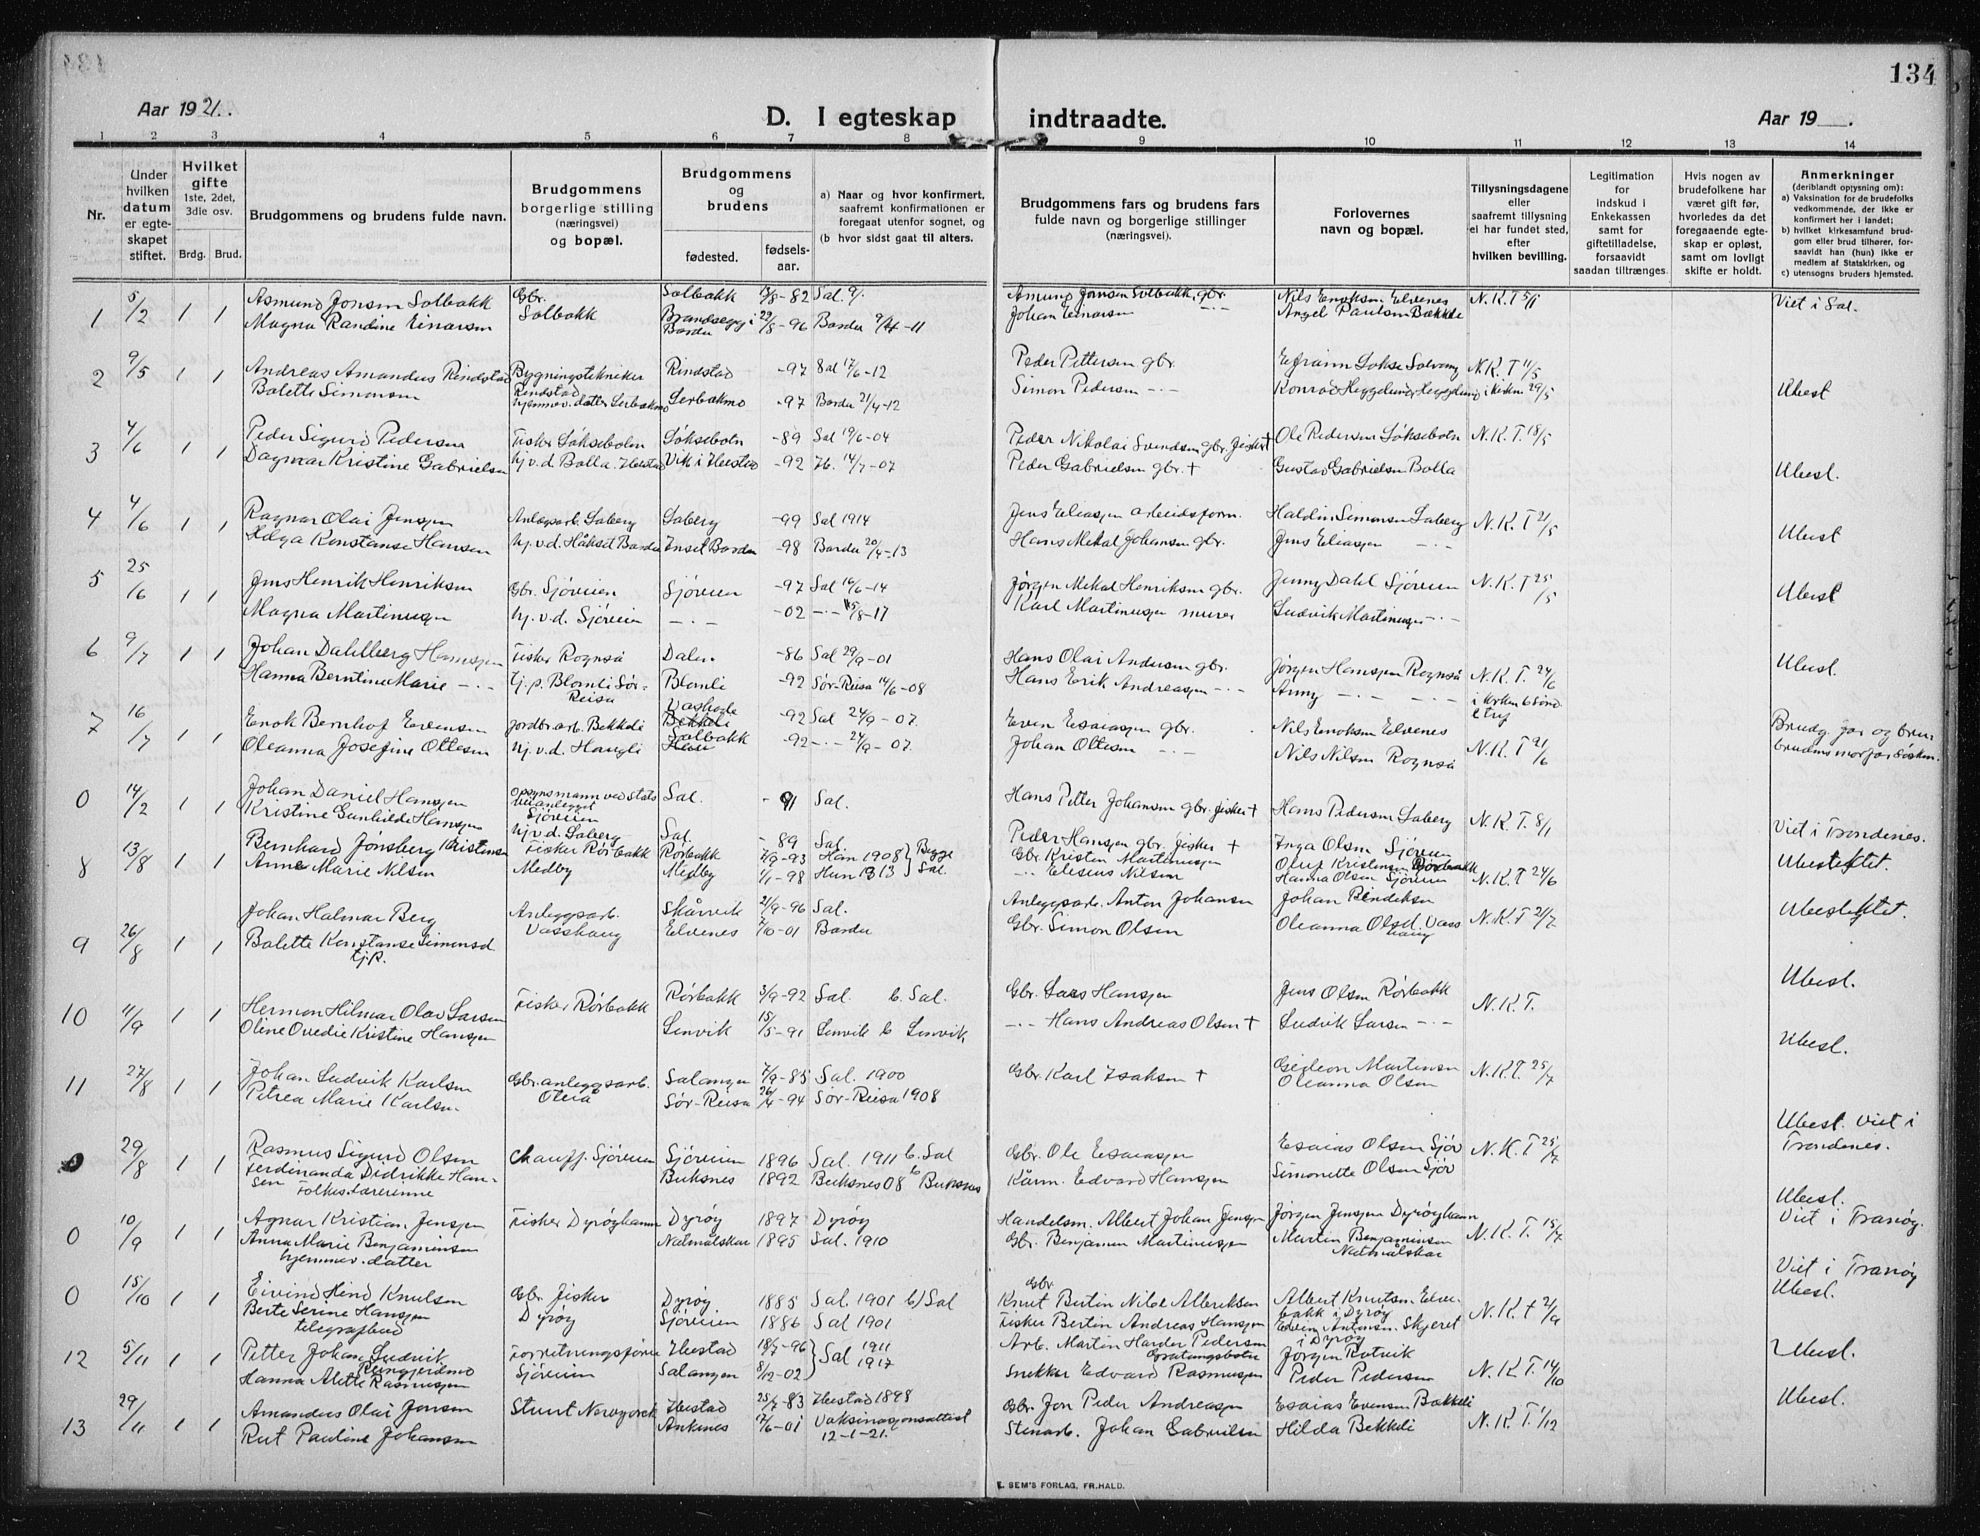 134
Aar 1921.
D. I egteskap indtraadte.
Aar 19__.
1 2 3 4 5 6 7 8 9 10 11 12 13 14
Nr.
Under hvilken datum er egte-skapet stiftet.
Hvilket gifte 1ste, 2det, 3die osv.
Brdg. Brud.
Brudgommens og brudens fulde navn.
Brudgommens borgerlige stilling (næringsvei) og bopæl.
Brudgommens og brudens
fødested. fødsels-aar.
a) Naar og hvor konfirmert, saafremt konfirmationen er foregaat utenfor sognet, og
(b hvor sidst gaat til alters.
Brudgommens fars og brudens fars fulde navn og borgerlige stillinger (næringsvei).
Forlovernes navn og bopæl.
Tillysningsdagene eller saafremt tillysning ei har fundet sted, efter hvilken bevilling.
Legitimation for indskud i Enkekassen samt for giftetilladelse, forsaavidt saadan tiltrænges.
Hvis nogen av brudefolkene har været gift før, hvorledes da det foregaaende egte-skap er opløst, samt om lovligt skifte er holdt.
Anmerkninger (deriblandt opjysning om):
a) Vaksination for de brudefolks vedkommende, der ikke er konfirmert her i landet;
b) hvilket kirkesamfund brud-gom eller brud tilhører, for-saavidt han (hun) ikke er medlem af Statskirken, og
c) utensogns bruders hjemsted.
1 5/2 1 1 Asmund Jonsen Solbakk Gbr. Solbakk 13/8-82 Sal. Amund Jonsen Solbakk, gbr. Nils Enoksen Elvenes N.K.T 5/1 Viet i Sal.
Magna Randine Einarsen Solbakk Brandsegg i Bardu 22/8-96 Bardu 9/4-11 Johan Einarsen -·- Angel Paulsen Bækkli
2 9/5 1 1 Andreas Amandus Rindstad Bygningstekniker Rindstad -97 Sal 17/6-12 Peder Pettersen gbr. N.K.T 11/5
Balette Simonsen Rindstad hjemmev. datter Serbakmo Serbakmo -97 Bardu 21/4-12 Simon Pedersen -·- Konrad Heggelund Ubesl
3 4/6 1 1 Peder Sigurd Pedersen Fisker Løksebotn Løksebotn -89 Sal 19/6-04 Peder Nikolai Svendsen gbr. fisker† Ole Pedersen Løksebotn N.K.T. 18/5
Dagmar Kristine Gabrielsen hj.v.d. Bolla. Ibestad Vik i Ibestad -92 Ib. 14/7-07 Peder Gabrielsen gbr.† Gustav Gabrielsen Bolla Ubesl.
4 4/6 1 1 Ragnar Olai Jensen Anlegsarb. Laberg Laberg -99 Sal 1914 Jens Eliassen arbeidsform. Haldin Simonsen Laberg N.K.T 21/5
Helga Konstanse Hansen hj.v.d. Håkset Bardu Inset Bardu -98 Bardu 20/4-13 Hans Mekal Johansen gbr. Jens Eliassen -·- Ubesl
5 25/6 1 1 Jens Henrik Henriksen Gbr. Sjøveien Sjøveien -97 Sal 16/6-14 Jørgen Mekal Henriksen gbr. Jenny Dahl Sjøveien N.K.T 25/5
Magna Martinussen hj.v.d. Sjøveien -·- -02 -·- 15/8-17 Karl Martinussen murer Ludvik Martinussen -·- Ubesl
6 9/7 1 1 Johan Dahlberg Hanssen Fisker Rognså Dalen -86 Sal 29/9-01 Hans Olai Andersen gbr. Jørgen Hanssen Rognså N.K.T. 24/6
Hanna Berntine Marie -·- tj.p. Blomli Sør-Reisa Blomli -92 Sør-Reisa 14/6-08 Hans Erik Andreassen -·- Anny -·- -·- Ubesl.
7 16/7 1 1 Enok Bernhof Evensen jordbr.arb. Bekkeli -92 Sal 24/9-07. Even Esaiassen gbr. Nils Enoksen Elvenes N.K.T 21/6
Oleanna Josefine Ottesen hj.v.d. Haugli Solbakk -92 -·- 24/9-07. Johan Ottesen -·- Nils Nilsen Rognså Brudg. far og brudens morfar søsken.
0 14/2 1 1 Johan Daniel Hanssen opsynsmann ved Stats veianlegget Sjøveien Sal. -91 Sal. Hans Petter Johansen gbr. fisker† Hans Pedersen Laberg N.K.T. 8/1
Kristine Gunhilde Hanssen hj.v.d. Laberg Sal -89 Sal. Peder Hanssen gbr. fisker † Inga Olsen Sjøveien Viet i Trondenes.
8 13/8 1 1 Bernhard Jønsberg Kristensen Fisker Rørbakk Rørbakk 7/9-93 Han 1908 } Begge Gbr. Kristen Martinussen Oluf Kristensen Rørbakk N.K.T 24/6 Ubeslektet.
Anne Marie Nilsen Medby Medby 1/1-98 Hun 1913 } Sal. -·- Elesius Nilsen Hanna Olsen Sjøveien
9 26/8 1 1 Johan Halmar Berg Anleggsarb. Vasshaug Skårvik 21/9-96 Sal. Anleggsarb. Anton Johansen Johan Bendiksen N.K.T 21/7 Ubeslektet.
Balette Konstanse Simonsd. tj.p. Elvenes 7/10-01 Bardu Gbr. Simon Olsen Oleanna Olsd. Vasshaug
10 11/9 1 1 Hermon Hilmar Olav Larsen Fisker Rørbakk Rørbakk 3/9-92 Sal. b. Sal. Gbr. Lars Hanssen Jens Olsen Rørbakk N.K.T. Ubesl.
Oline Ovedie Kristine Hanssen Lenvik 15/5-91 Lenvik b Lenvik -·- Hans Andreas Olsen† Ludvik Larsen -·-
11 27/8 1 1 Johan Ludvik Karlsen Gbr. anleggsarb. Salangen 7/9-85 Sal. 1900 Gbr. Karl Isaksen † Gideon Martinsen N.K.T. 25/7 Ubesl.
Petrea Marie Karlsen Sør-Reisa 26/4-94 Sør-Reisa 1908 Oleanna Olsen
0 29/8 1 1 Rasmus Sigurd Olsen Chauff. Sjøveien Sjøveien 1896 Sal. 1911 b. Sal Gbr. Ole Esaiassen Esaias Olsen Sjøv N.K.T 25/7 Ubesl. Viet i Trondenes.
Ferdinanda Didrikke Hansen Folkes. lærerinne Buksnes 1892 Buksnes 08 b Buksnes Edvard Hanssen Simonette Olsen Sjøv
0 10/9 1 1 Agnar Kristian Jenssen Fisker Dyrøyhamn Dyrøy 1897 Dyrøy Handelsm. Albert Johan Jenssen Jørgen Jenssen Dyrøyhamn N.K.T. 15/7 Ubesl. Viet i Tranøy.
Anna Marie Benjaminsen hjemmev. datter 1895 Sal. 1910 Gbr. Benjamin Martinussen Martin Benjaminsen
0 15/10 1 1 Eivind Hind Knutsen Gbr. fisker Dyrøy Dyrøy 1885 Sal. 1901 b/ Sal Gbr. Knut Bertin Nilol Albriksen Albert Knutsen Elvebakk i Dyrøy N.K.t 2/9 Viet i Tranøy Ubesl.
Berte Serine Hanssen telegrafbud Sjøveien 1886 Sal 1901 Fisker Bertin Andreas Hanssen Edvin Antonsen Skjeret i Dyrøy
12 5/11 1 1 Petter Johan Ludvik Forretningsfører Ibestad 18/7-96 } Sal 1911 Arb. Martin Harder Pedersen Jørgen Rotvik N.K.T 14/10 Ubesl.
Hanna Alette Rasmussen Sjøveien Salangen 8/12-02 } 1917 Snekker Edvard Rasmussen Peder Pedersen
13 29/11 1 1 Amandus Olai Jonsen Stuert Narvgorek Ibestad 25/7-83 Ibestad 1898 Gbr. Jon Peder Andreassen Esaias Evensen Bakkeli N.K.T. 1/12 Ubesl.
Rut Pauline Johansen Ankenes 12/6-01 Vaksinasjonsattest 12-1-21. Stenarb. Johan Gabrielsen Hilda Bekkeli
E. SEM'S FORLAG, FR.HALD.